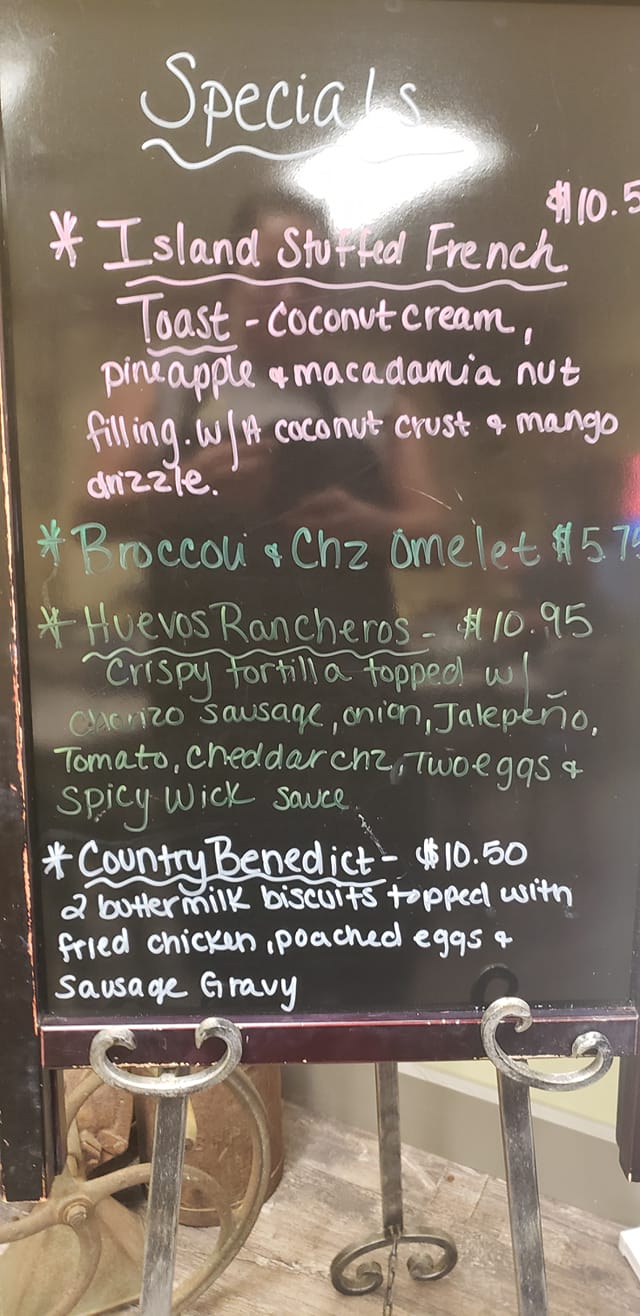 Specials
$10.5
* Island Stuffed French
Toast - Coconut cream,
pineapple & macadamia nut
filling. w/A coconut crust & mango
drizzle.
* Broccoli & Chz Omelet $5.75
* Huevos Rancheros - $10.95
Crispy tortilla topped w/
Chorizo sausage, onion, Jalepeño,
Tomato, cheddar chz, Two eggs &
Spicy Wick sauce
* Country Benedict - $10.50
2 buttermilk biscuits topped with
fried chicken, poached eggs &
Sausage Gravy